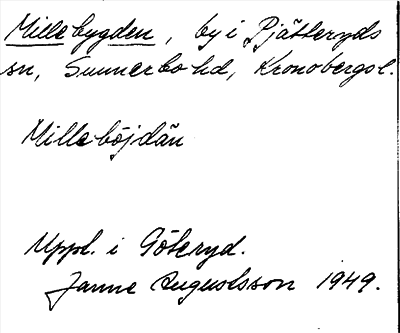 Millebygden, by i Pjätteryds
sn, Sunnerbo hd, Kronobergsl.
Milleböjdän
Uppt. i Göteryd.
Janne Augustsson 1949.